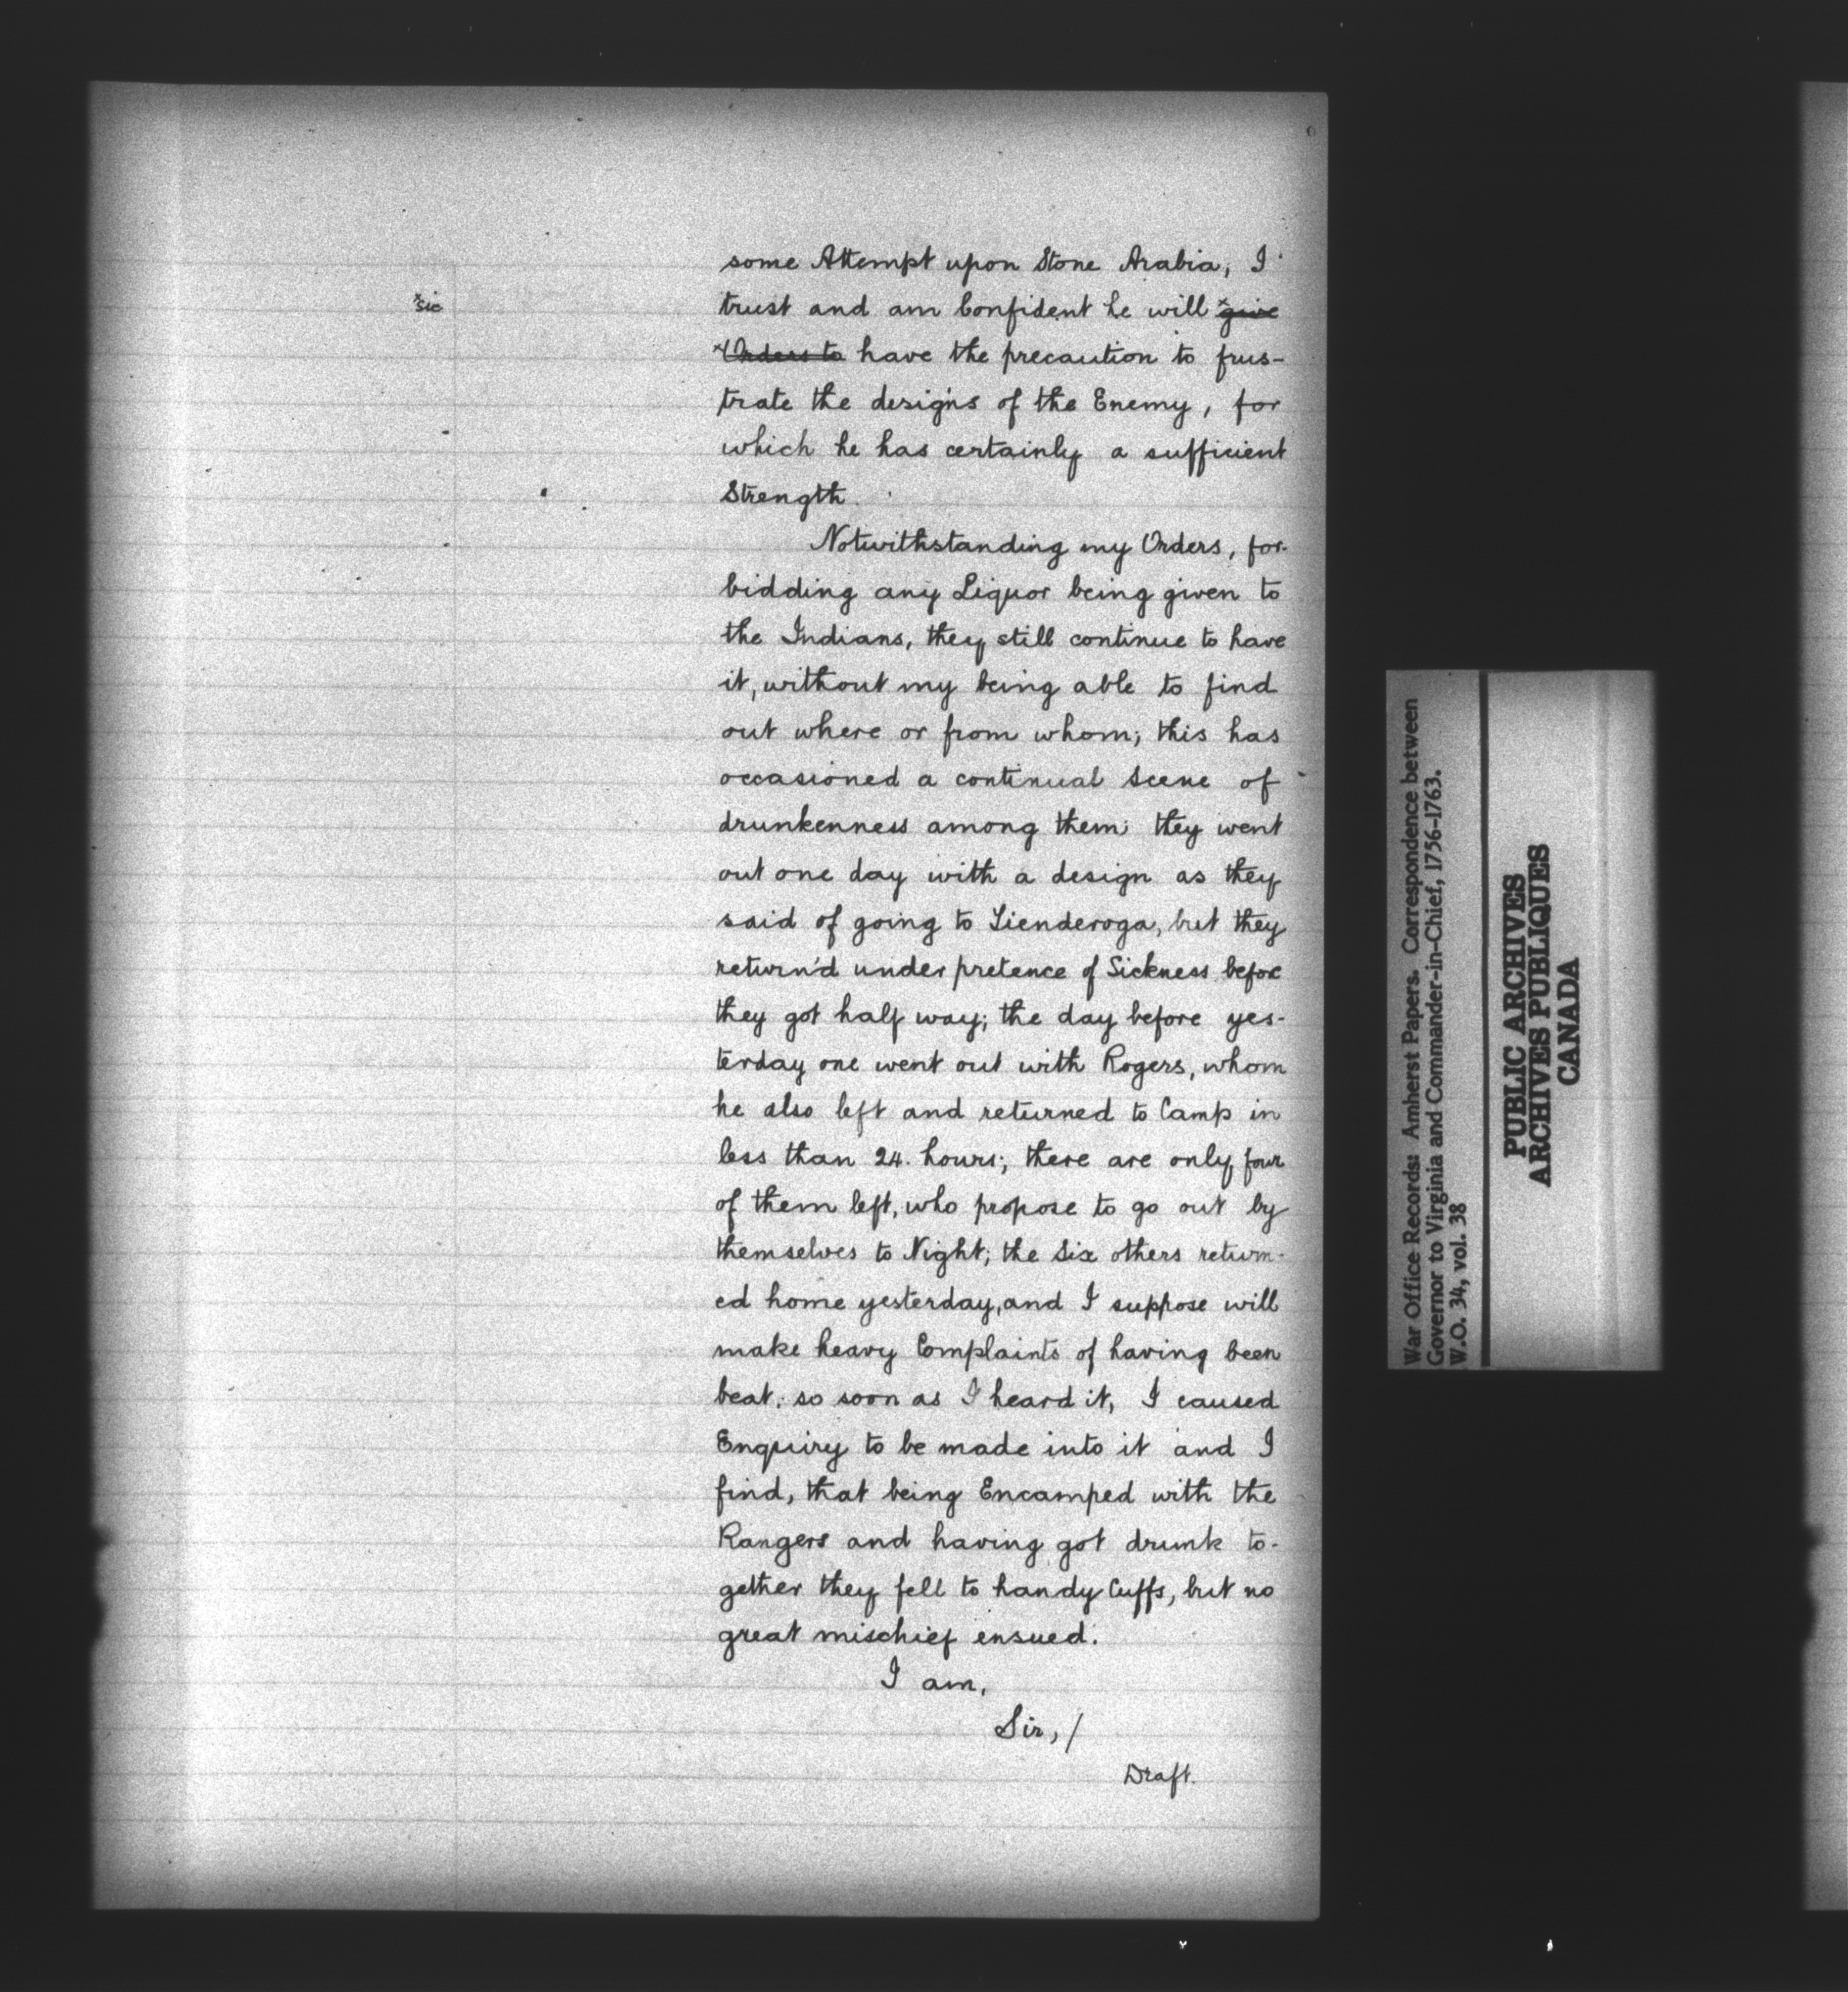 some Attempt upon Stone Arabia, I
trust and am Confident he will ˣgive
ˣsic
ˣOrders to have the precaution to frus-
trate the designs of the Enemy, for
which he has certainly a sufficient
Strength.
Notwithstanding my Orders, for-
bidding any Liquor being given to
the Indians, they still continue to have
it, without my being able to find
out where or from whom; this has
occasioned a continual Scene of
drunkenness among them; they went
out one day with a design as they
said of going to Tienderoga, but they
return'd under pretence of Sickness before
they got half way; the day before yes-
terday one went out with Rogers, whom
he also left and returned to Camp in
less than 24. hours; there are only four
of them left, who propose to go out by
themselves to Night; the Six others return-
ed home yesterday, and I suppose will
make heavy Complaints of having been
beat; so soon as I heard it, I caused
Enquiry to be made into it and I
find, that being Encamped with the
Rangers and having got drunk to-
gether they fell to handy Cuffs, but no
great mischief ensued.
I am,
Sir, /
Draft.
War Office Records: Amherst Papers. Correspondence between
Governor to Virginia and Commander-in-Chief, 1756-1763.
W.O. 34, vol. 38
PUBLIC ARCHIVES
ARCHIVES PUBLIQUES
CANADA